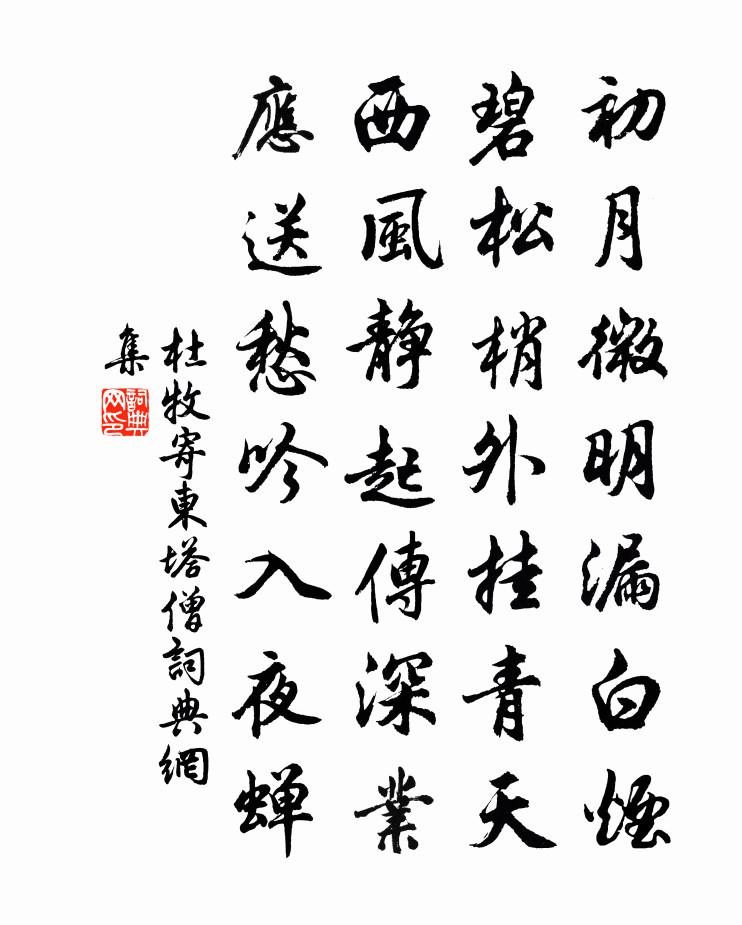 初月微明漏白煙
碧松梢外挂青天
西風静起傳深業
應送愁吟入夜蟬
杜牧寄東塔僧詞典網
集
詞典
网印